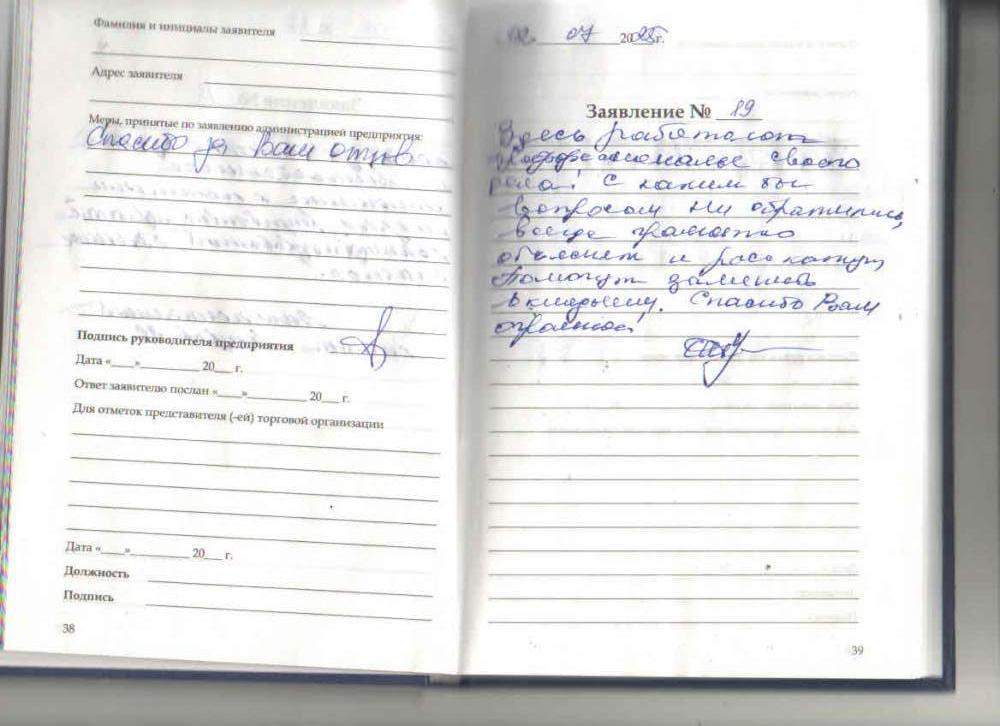 Фамилия и инициалы заявителя
Адрес заявителя
Меры, принятые по заявлению администрацией предприятия:
Спасибо за Ваш отзыв
Подпись руководителя предприятия
Дата «___»__________ 20___ г.
Ответ заявителю послан «___»__________ 20___ г.
Для отметок представителя (-ей) торговой организации
Дата «___»__________ 20___ г.
Должность
Подпись
38
02 07 2025г.
Заявление № 19
Здесь работают
профессионалы своего
рода! С каким бы
вопросом ни обратились,
всегда грамотно
объяснят и расскажут,
помогут заменить
Спасибо Вам
огромное!
39